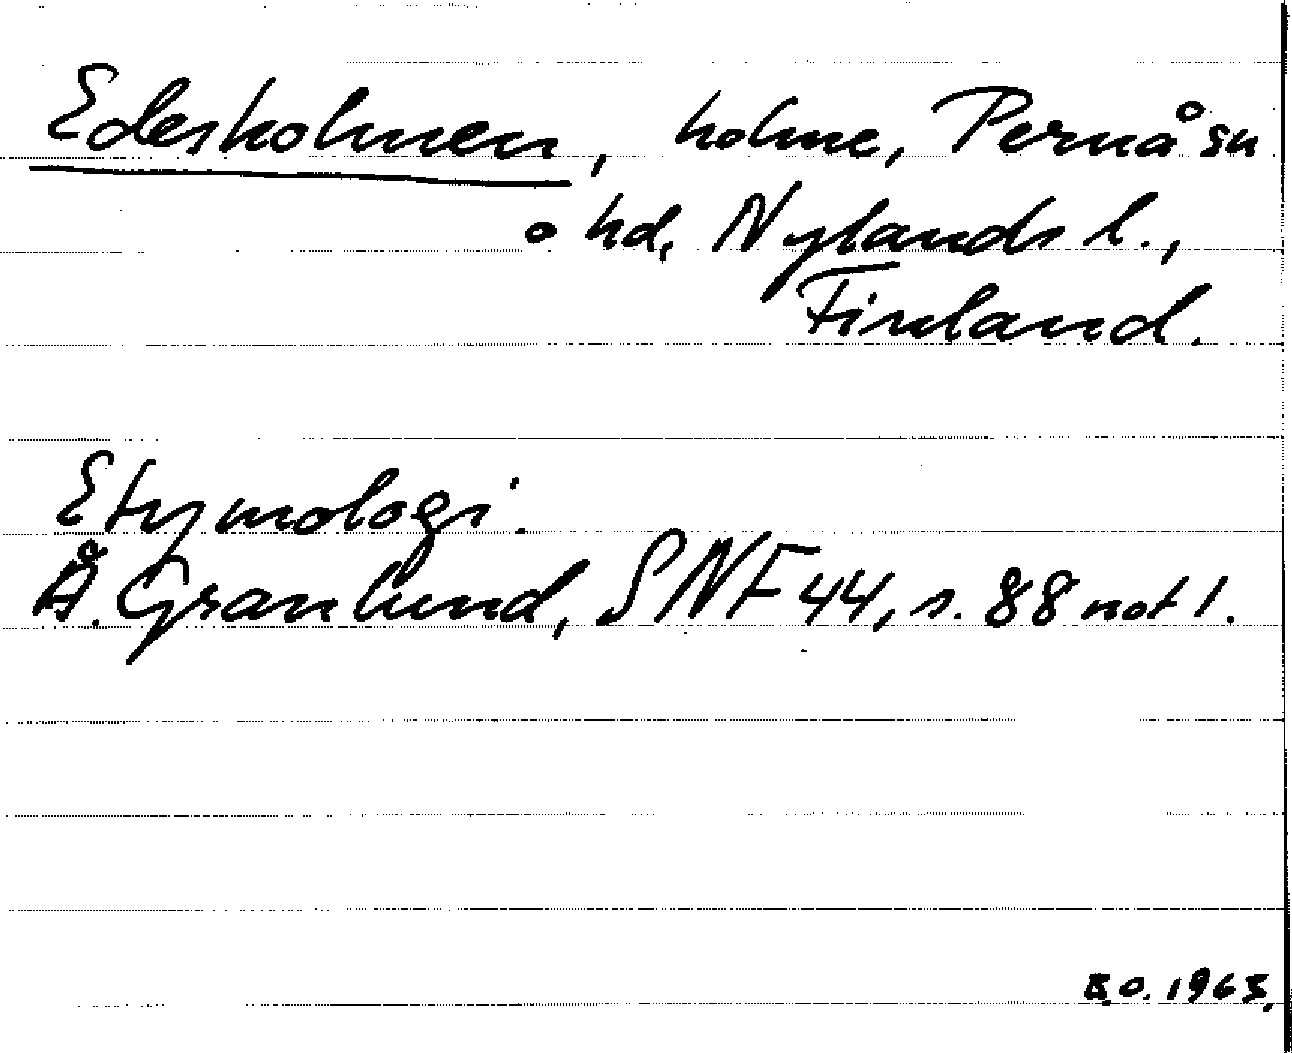 Edesholmen, holme, Pernå sn
o hd, Nylands l.,
Finland.
Etymologi.
Å. Granlund, SNF 44, s. 88 not 1.
B.O. 1963.